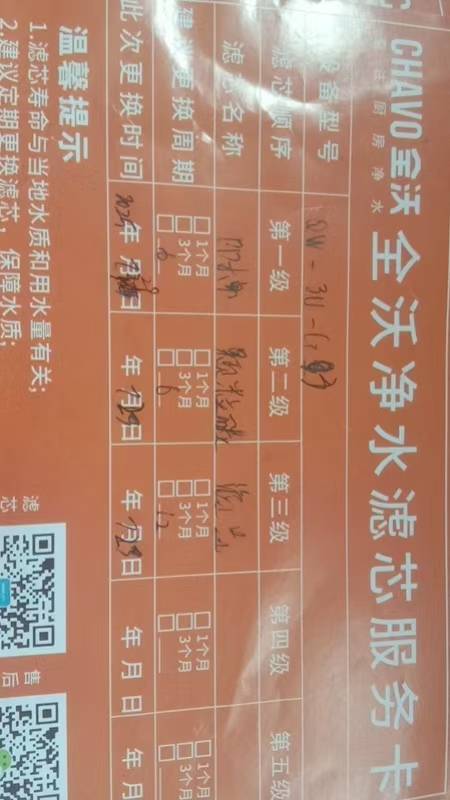 CHAVO全沃 全沃净水滤芯服务卡
专注厨房净水
设备型号
滤芯顺序 第一级 第二级 第三级 第四级 第五级
滤芯名称 颗粒碳
建议更换周期 1个月 1个月 1个月 1个月 1个月
3个月 3个月 3个月 3个月 3个月
6 6 12
此次更换时间 年 月 日 年 月29日 年 月29日 年 月 日 年 月
温馨提示
1.滤芯寿命与当地水质和用水量有关;
2.建议定期更换滤芯,保障水质;
滤芯
售后